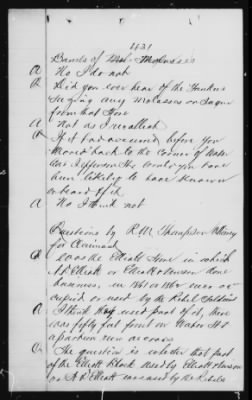 1631
Barrels of Molasses
A No I do not
Q Did you ever hear of the Yankees
Seizing any Molasses or Sugar
from that Store
A Not as I recollect
Q If it had occurred before you
Moved back to the Corner of Water
and Jefferson Sts would you have
been likely to have known
or heard of it
A No I think not
Questions by R.W. Thompson Attorney
for Claimant
Q Was the Elliott Store in which
A. D. Elliott or Elliott done
business, in 1861 or 1862 ever oc-
cupied or used by the Rebel Soldiers
A I think they used part of it, there
was fifty feet front on Water St
a partition run across
Q The question is whether that part
of the Elliott Block used by Elliott
or A. D. Elliott was used by the Rebels